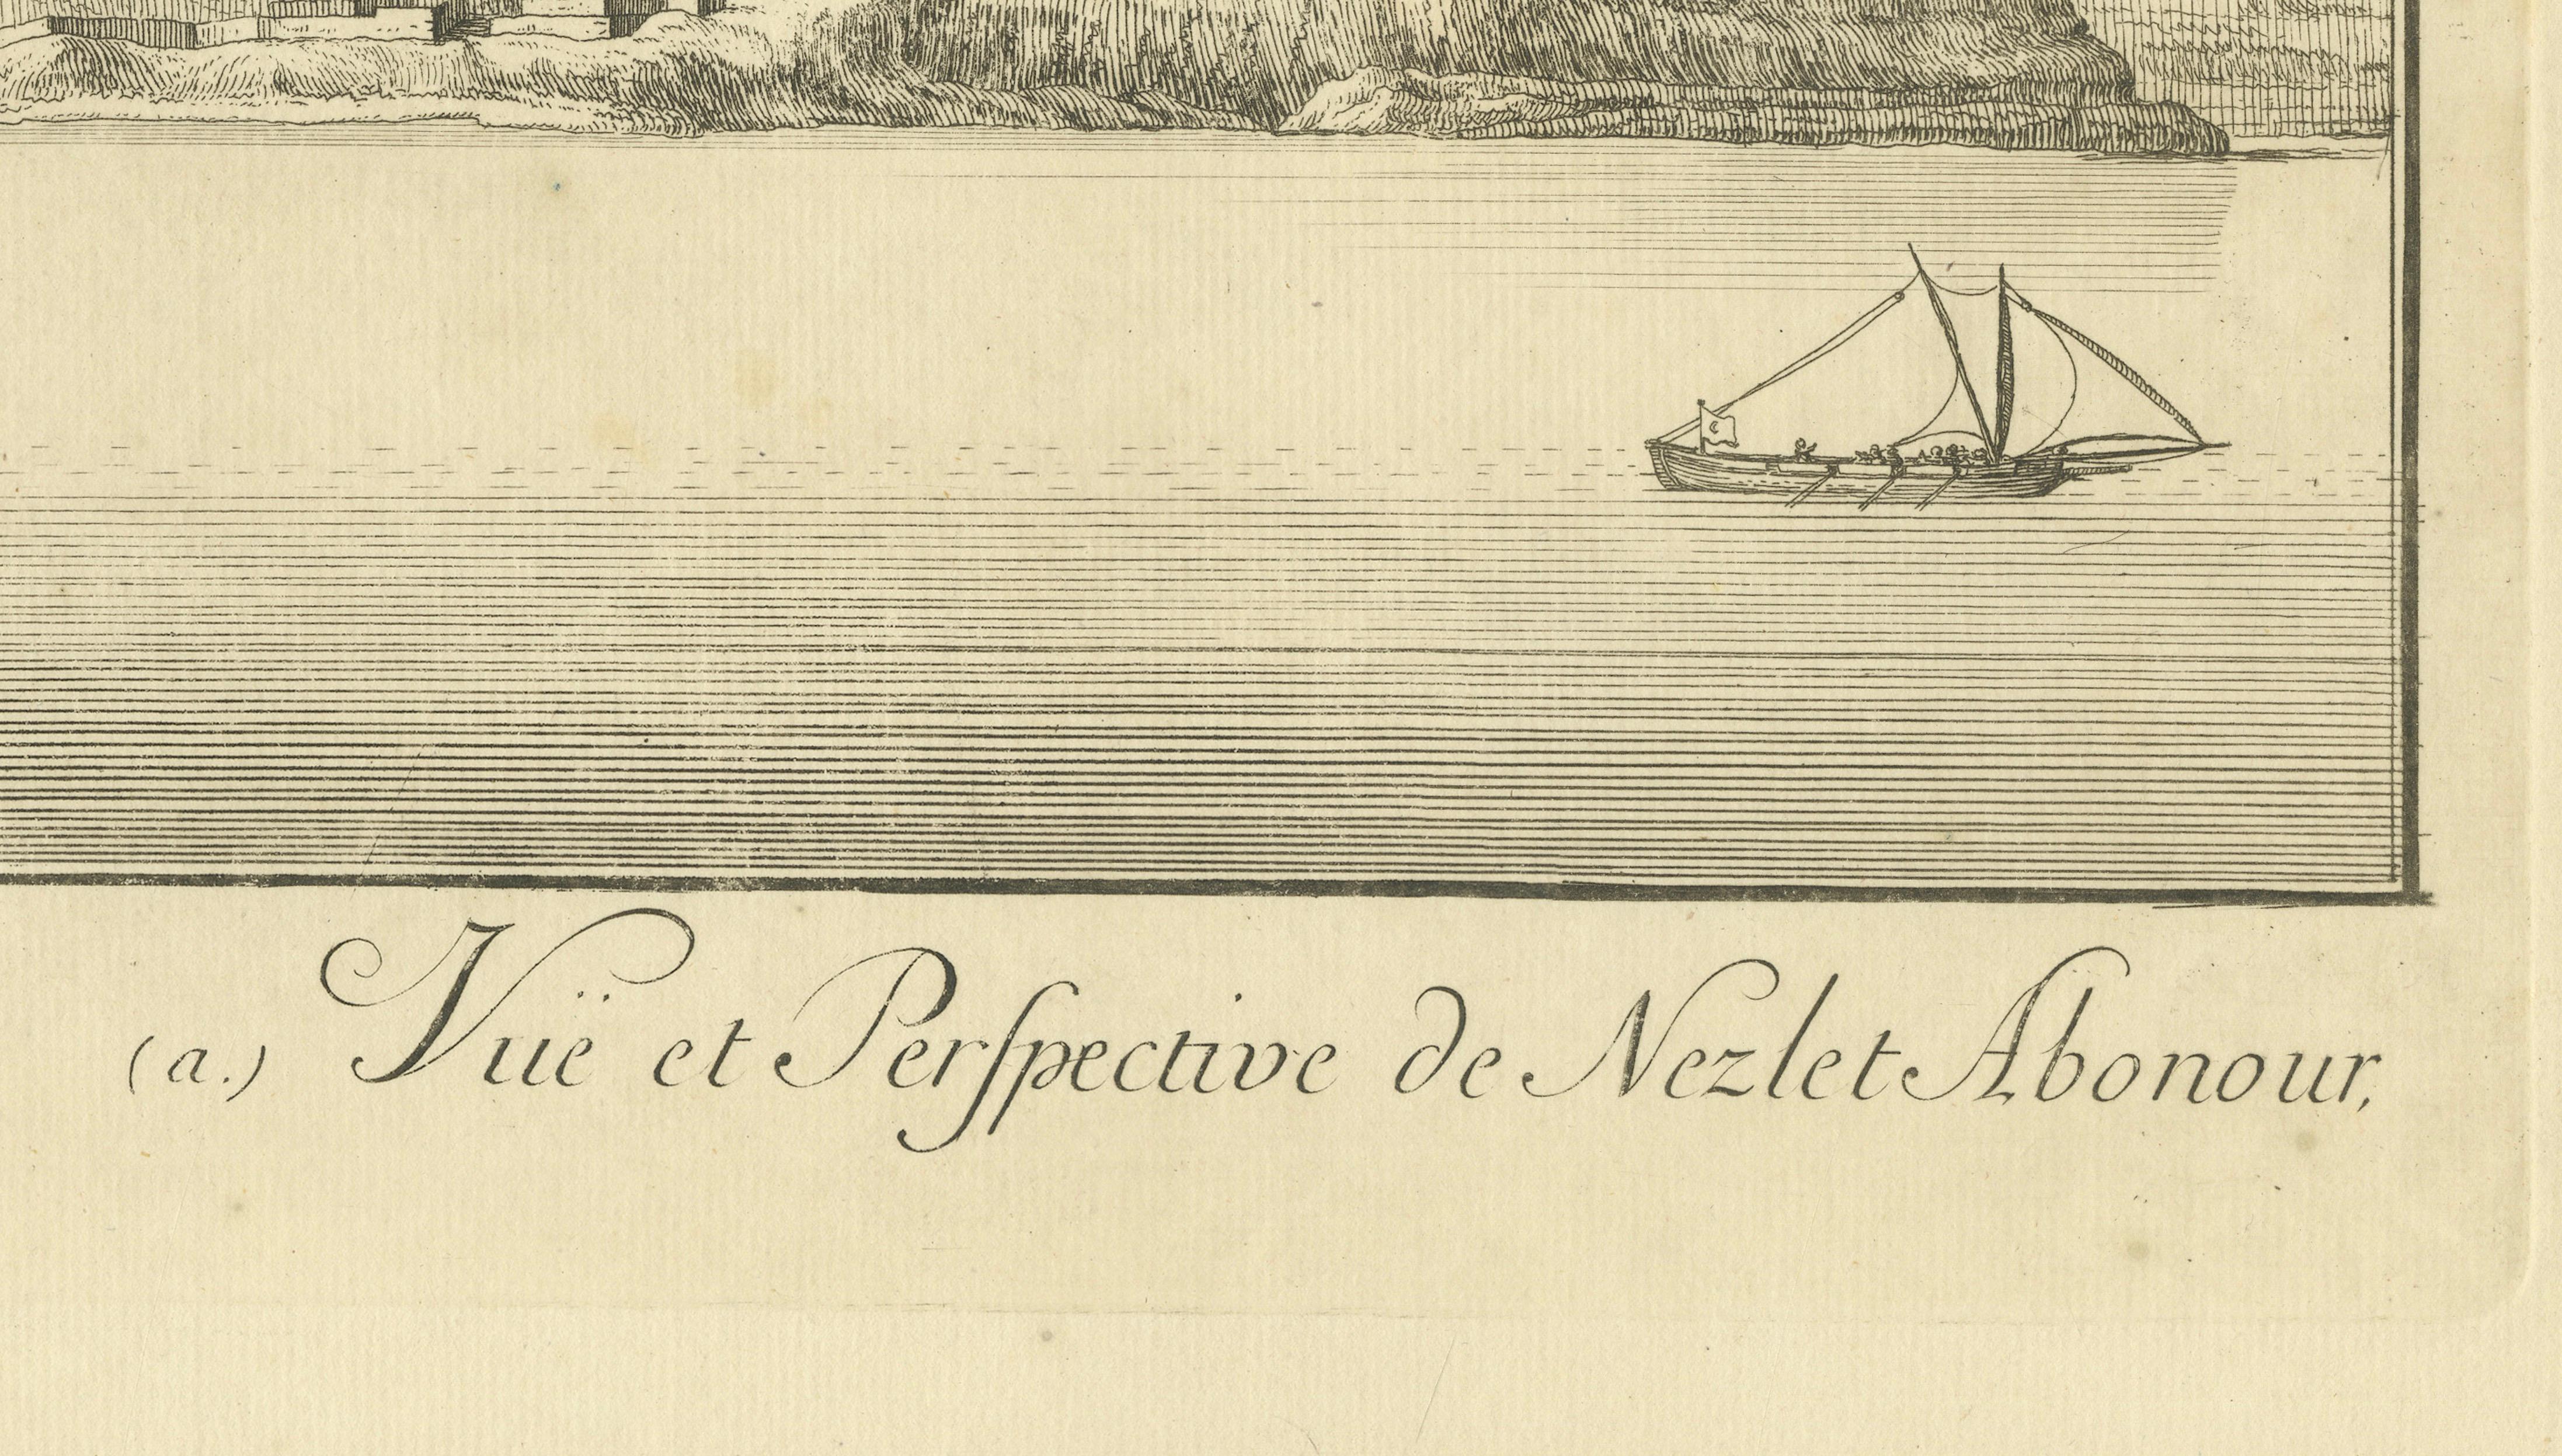 (a.) Vuë et Perſpective de Nezlet Abonour,